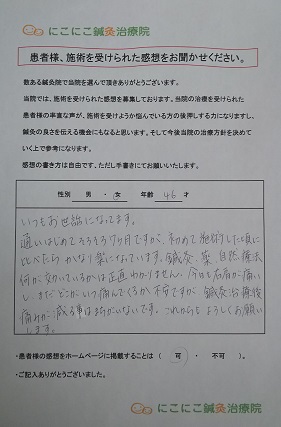 にこにこ鍼灸治療院
患者様、施術を受けられた感想をお聞かせください。
数ある鍼灸院で当院を選んで頂きありがとうございます。
当院では、施術を受けられた感想を募集しております。当院の治療を受けられた
患者様の率直な声が、施術を受けようか悩んでいる方の後押しする力になりますし
鍼灸の良さを伝える機会にもなると思います。そして今後当院の治療方針を決めて
いく上で参考になります。
感想の書き方は自由です。ただし手書きにてお願いいたします。
性別 男 ・ 女 年齢 46 才
いつもお世話になってます。
通いはじめてそろそろ7ヶ月ですが、初めて施術した頃に
比べたらかなり楽になっています。鍼灸、薬、自然療法
何が効いているかは正直わかりません。今日も右肩が痛い
し、まだどこがいつ痛んでくるか不安ですが、鍼灸治療後
痛みが減る事はまちがいないです。これからもよろしくお願い
します。
・患者様の感想をホームページに掲載することは ( 可 ・ 不可 )。
・ご記入ありがとうございました。
にこにこ鍼灸治療院